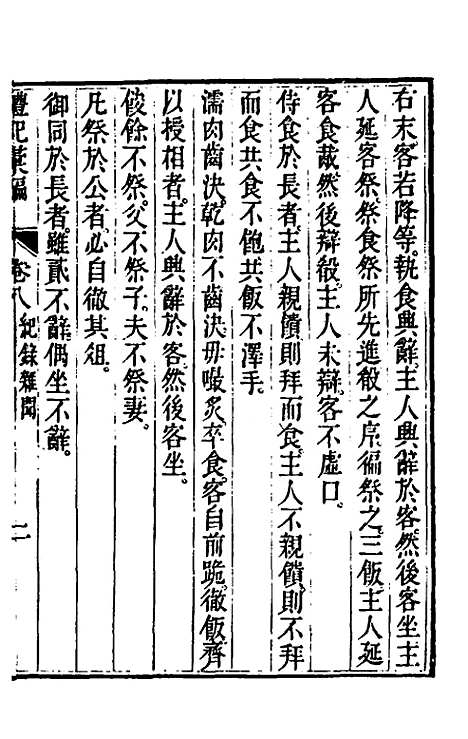 右末客若降等執食興辭主人興辭於客然後客坐主
人延客祭祭食祭所先進殽之序徧祭之三飯主人延
客食胾然後辯殽主人未辯客不虛口
侍食於長者主人親饋則拜而食主人不親饋則不拜
而食共食不飽共飯不澤手
濡肉齒決乾肉不齒決毋嘬炙卒食客自前跪徹飯齊
以授相者主人興辭於客然後客坐
餕餘不祭父不祭子夫不祭妻
凡祭於公者必自徹其俎
御同於長者雖貳不辭偶坐不辭
禮記彙編 卷八 紀錄雜聞 二